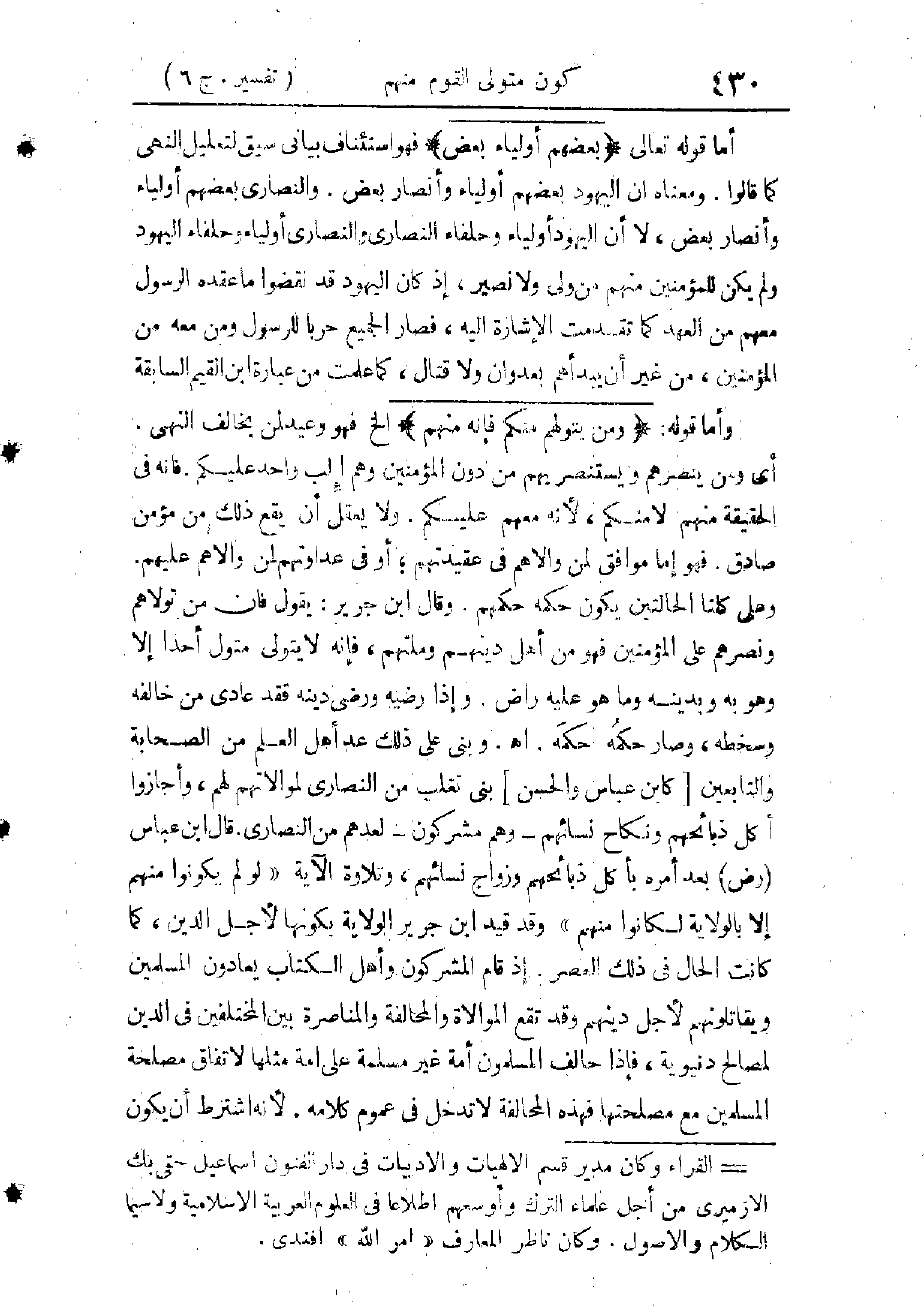 ٤٣٠ كون متولى القوم منهم ( تفسير . ج ٦ )
أما قوله تعالى ﴿ بعضهم أولياء بعض ﴾ فهو استئناف بيانى سيق لتعليل النهى
كما قالوا . ومعناه ان اليهود بعضهم أولياء وأنصار بعض . والنصارى بعضهم أولياء
وأنصار بعض ، لا أن اليهود أولياء وحلفاء النصارى والنصارى أولياء وحلفاء اليهود
ولم يكن للمؤمنين منهم من ولى ولا نصير ، إذ كان اليهود قد نقضوا ما عقده الرسول
معهم من العهد كما تقدمت الإشارة اليه ، فصار الجميع حربا للرسول ومن معه من
المؤمنين ، من غير أن يبدأهم بعدوان ولا قتال ، كما علمت من عبارة ابن القيم السابقة
وأما قوله: ﴿ ومن يتولهم منكم فإنه منهم ﴾ الخ فهو وعيد لمن يخالف النهى .
أى ومن ينصرهم ويستنصر بهم من دون المؤمنين وهم إلب واحد عليكم . فانه فى
الحقيقة منهم لا منكم ، لأنه معهم عليكم . ولا يعقل أن يقع ذلك من مؤمن
صادق . فهو إما موافق لمن والاهم فى عقيدتهم ؛ أو فى عداوتهم لمن والاهم عليهم.
وعلى كلتا الحالتين يكون حكمه حكمهم . وقال ابن جرير : يقول فان من تولاهم
ونصرهم على المؤمنين فهو من أهل دينهم وملتهم ، فإنه لا يتولى متول أحدا إلا
وهو به وبدينه وما هو عليه راض . وإذا رضيه ورضى دينه فقد عادى من خالفه
وسخطه ، وصار حكمُه حكمَه . اه . وبنى على ذلك عد أهل العلم من الصحابة
والتابعين [ كابن عباس والحسن ] بنى تغلب من النصارى لموالاتهم لهم ، وأجازوا
أكل ذبائحهم ونكاح نسائهم – وهم مشركون – لعدهم من النصارى. قال ابن عباس
(رض) بعد أمره بأكل ذبائحهم وزواج نسائهم ، وتلاوة الآية « لو لم يكونوا منهم
إلا بالولاية لكانوا منهم » وقد قيد ابن جرير الولاية بكونها لأجل الدين ، كما
كانت الحال فى ذلك العصر . إذ قام المشركون وأهل الكتاب يعادون المسلمين
ويقاتلونهم لأجل دينهم وقد تقع الموالاة والمحالفة والمناصرة بين المختلفين فى الدين
لمصالح دنيوية ، فإذا حالف المسلمون أمة غير مسلمة على امة مثلها لاتفاق مصلحة
المسلمين مع مصلحتها فهذه المحالفة لاتدخل فى عموم كلامه . لأنه اشترط أن يكون
== القراء وكان مدير قسم الالهيات والادبيات فى دار الفنون اسماعيل حقى بك
الازميرى من أجل علماء الترك وأوسعهم اطلاعا فى العلوم العربية الاسلامية ولاسيما
الكلام والاصول . وكان ناظر المعارف « امر الله » افندى .